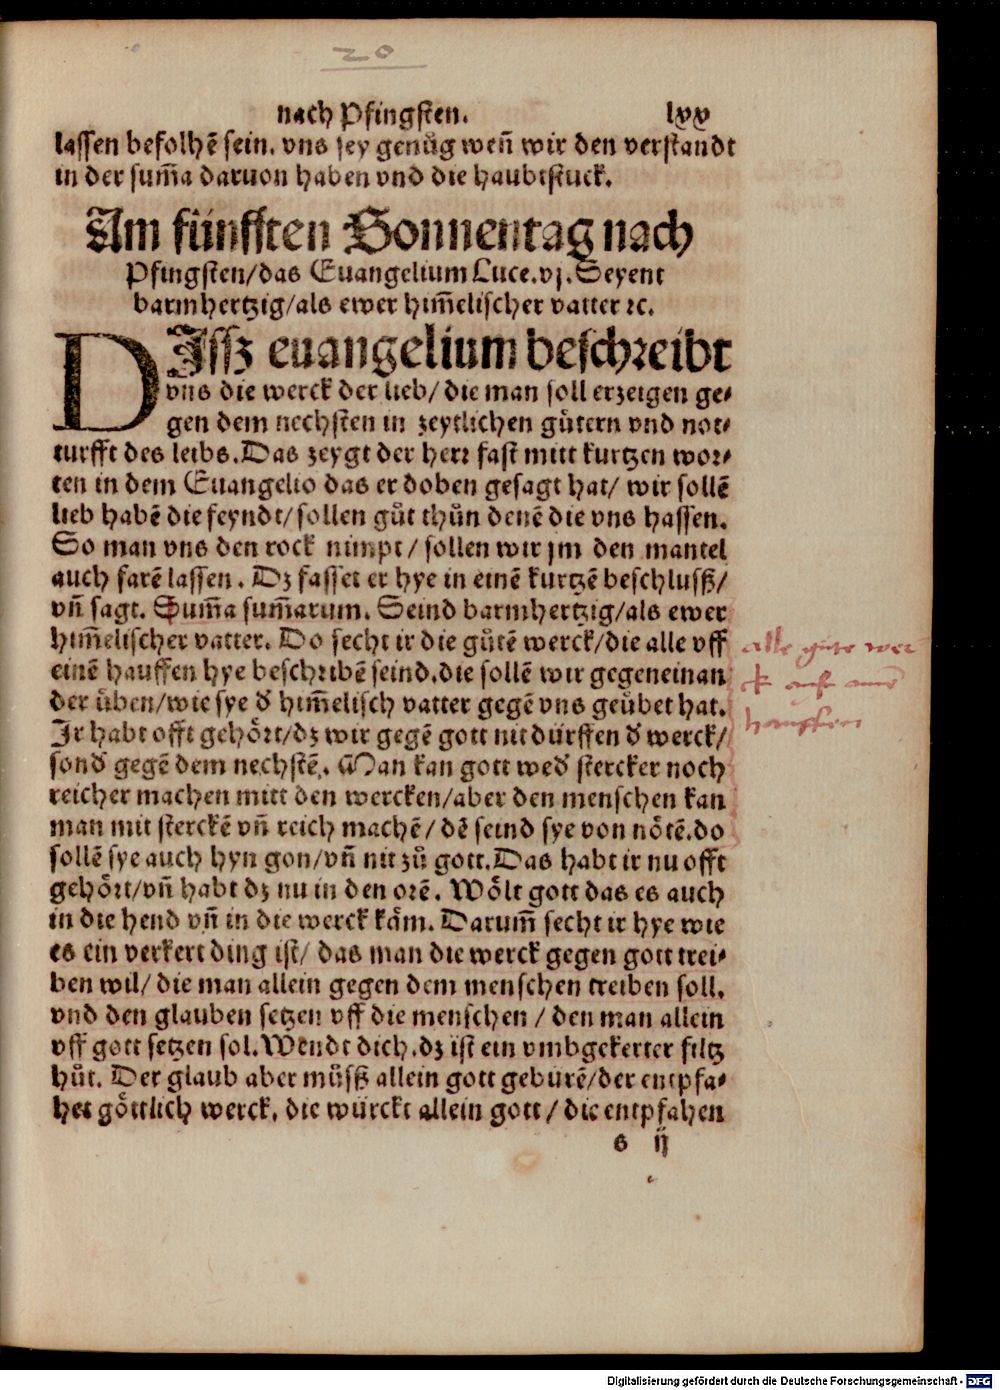 20
nach Pfingsten. lxx
lassen befolhẽ sein. vns sey genůg weñ wir den verstandt
in der sum̃a daruon haben vnd die haubtstuck.
Am fünfften Sonnentag nach
Pfingsten/das Euangelium Luce.vj. Seyent
barmhertzig/als ewer him̃elischer vatter ꝛc.
DIssz euangelium beschreibt
vns die werck der lieb/ die man soll erzeigen ge⸗
gen dem nechsten in zeytlichen gůtern vnd not⸗
turfft des leibs. Das zeygt der herr fast mitt kurtzen wor⸗
ten in dem Euangelio das er doben gesagt hat/ wir sollẽ
lieb habẽ die feyndt/ sollen gůt thůn denẽ die vns hassen.
So man vns den rock nimpt/ sollen wir jm den mantel
auch farẽ lassen. Dz fasset er hye in einẽ kurtzẽ beschlusß/
vñ sagt. Sum̃a sum̃arum. Seind barmhertzig/als ewer
him̃elischer vatter. Do secht ir die gůtẽ werck/die alle vff
einẽ hauffen hye beschribẽ seind.die sollẽ wir gegeneinan
der ůben/wie sye d̕ him̃elisch vatter gegẽ vns geůbet hat.
Ir habt offt gehoͤrt/dz wir gegẽ gott nit dürffen d̕ werck/
sond̕ gegẽ dem nechstẽ. Man kan gott wed̕ stercker noch
reicher machen mitt den wercken/aber den menschen kan
man mit sterckẽ vñ reich machẽ/ dẽ seind sye von noͤtẽ.do
sollẽ sye auch hyn gon/vñ nit zů gott. Das habt ir nu offt
gehoͤrt/vñ habt dz nu in den orẽ. Woͤlt gott das es auch
in die hend vñ in die werck kaͤm. Darum̃ secht ir hye wie
es ein verkert ding ist/ das man die werck gegen gott trei⸗
ben wil/ die man allein gegen dem menschen treiben soll.
vnd den glauben setzen vff die menschen / den man allein
vff gott setzen sol. Wendt dich.dz ist ein vmbgekerter filtz
hůt. Der glaub aber můsß allein gott geburẽ/der entpfa⸗
het goͤttlich werck. die würckt allein gott/ die entpfahen
s ij
alle gute wer
ck auff ein
hauffen
Digitalisierung gefördert durch die Deutsche Forschungsgemeinschaft - DFG